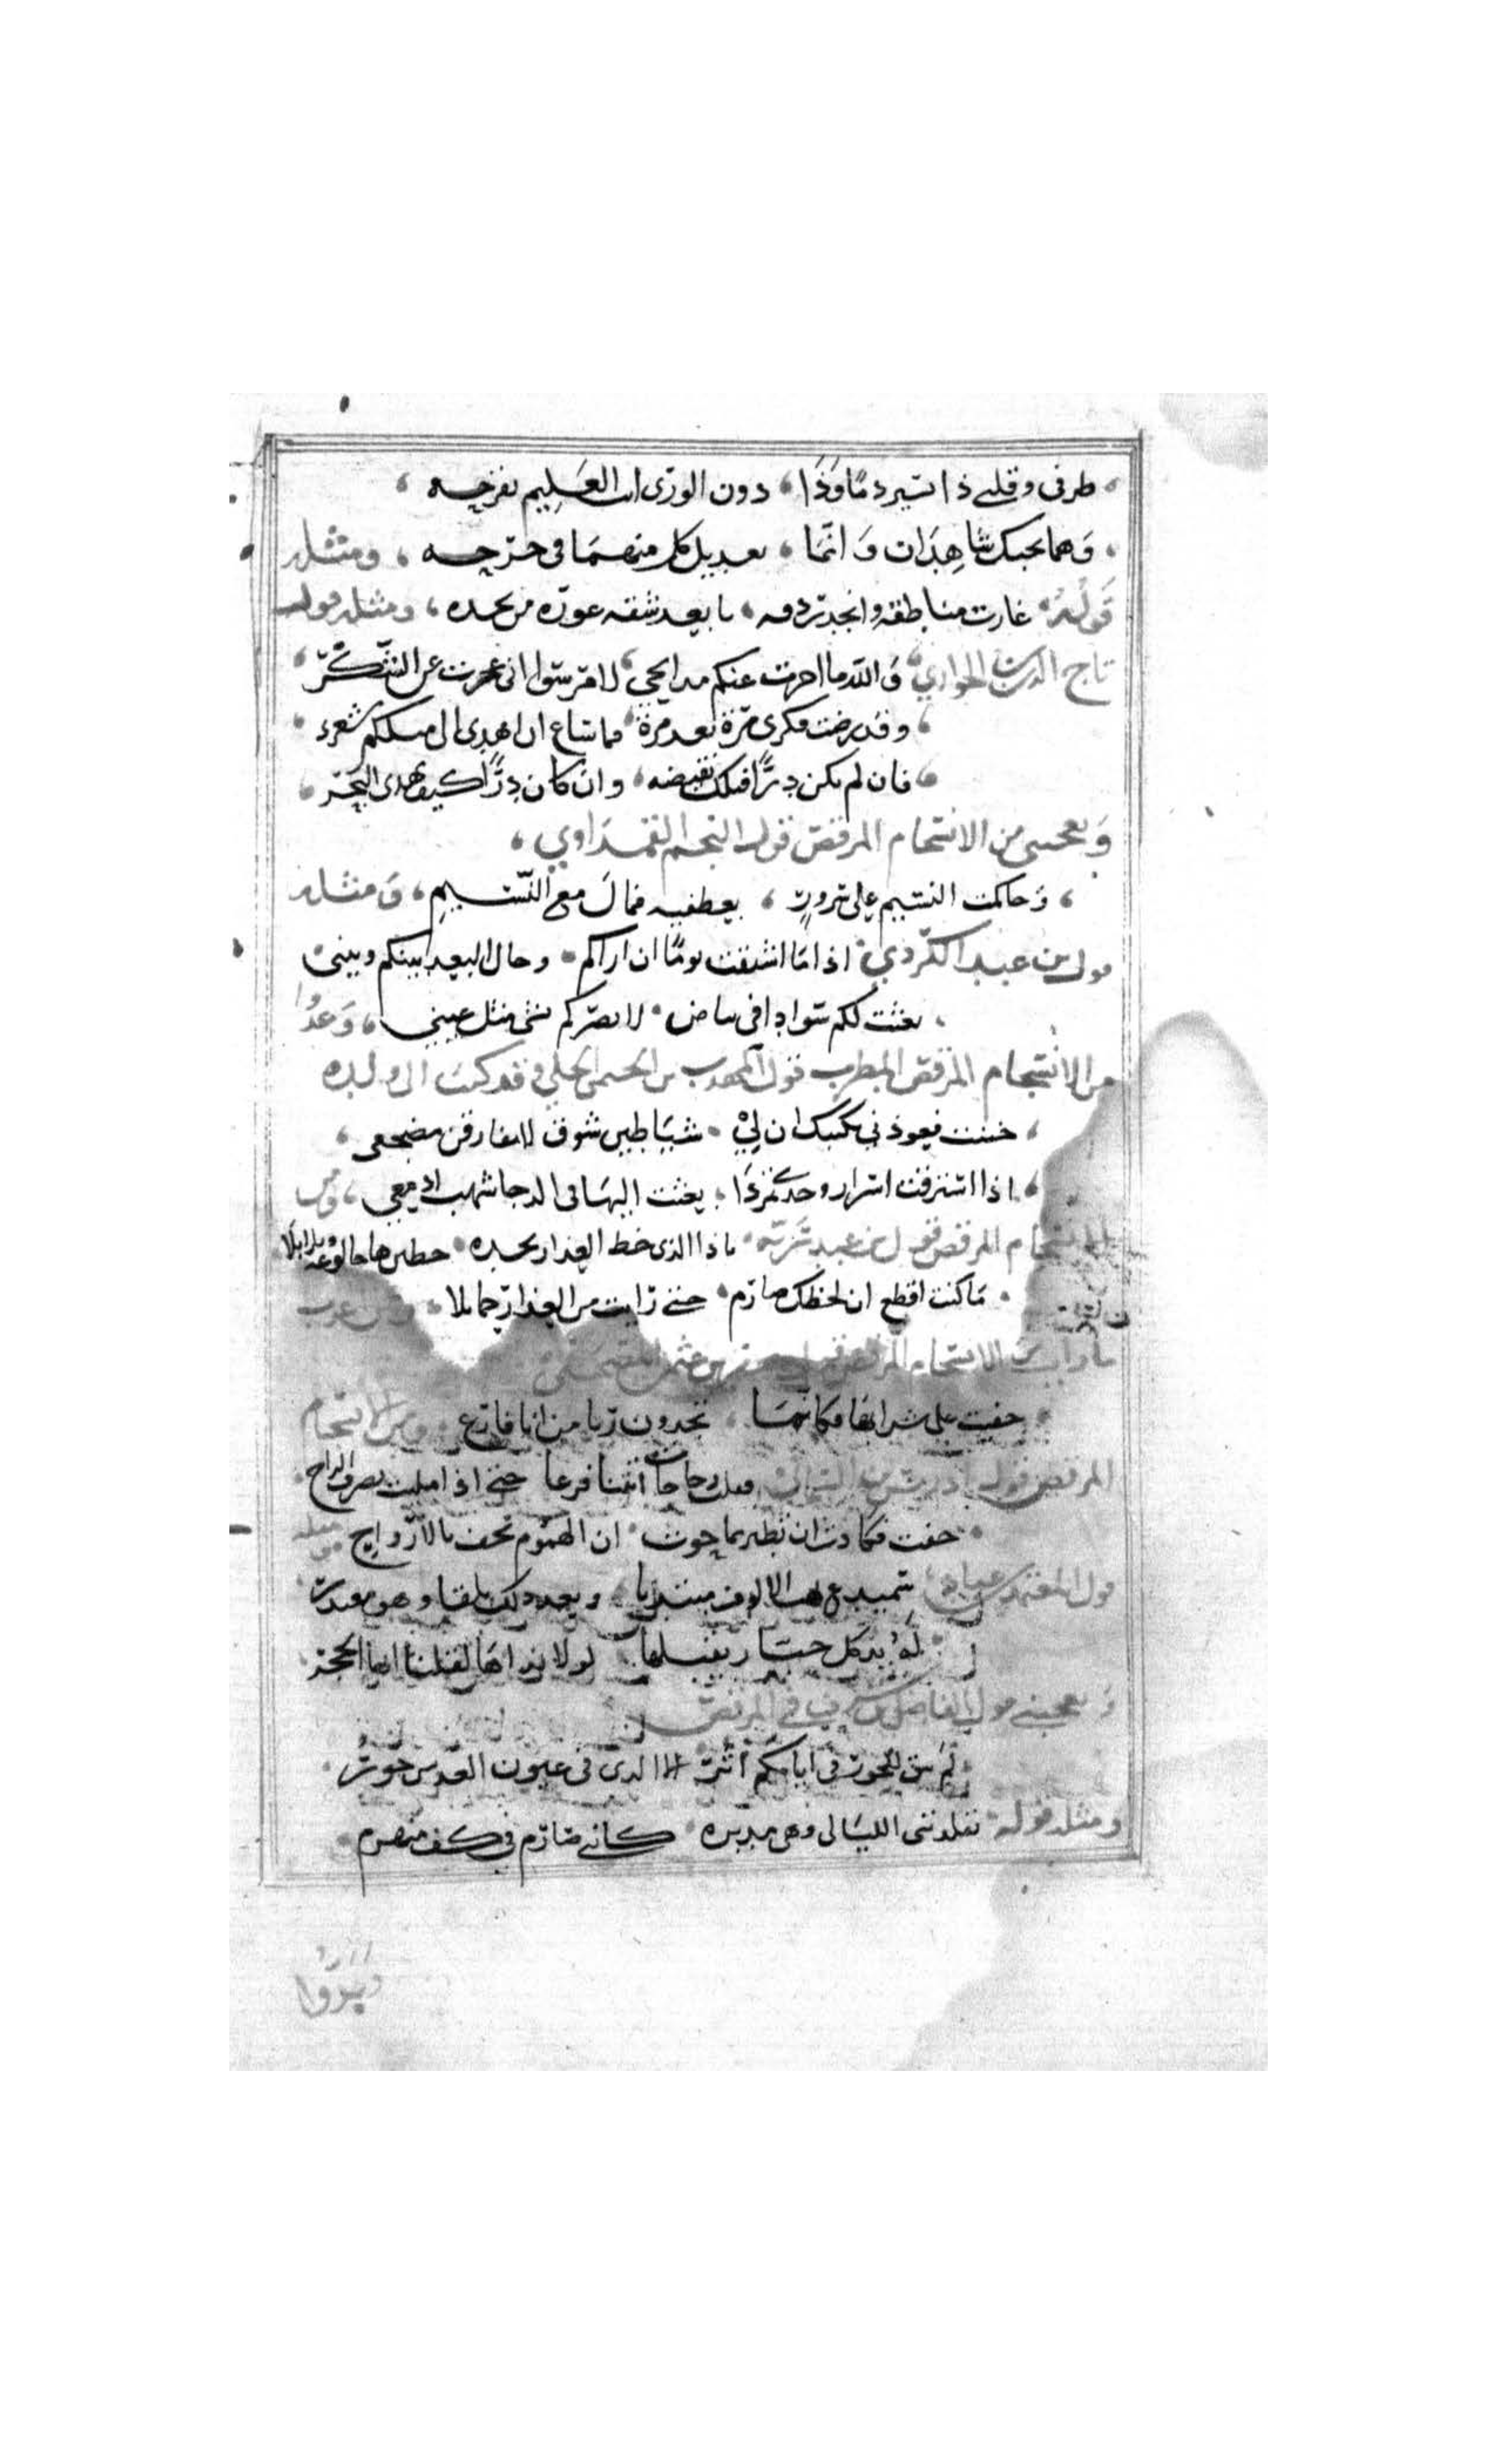 طرفي وقلبي ذا يسير دمًا وَذَا دون الورى انت العَلِيم بقرحِه
وَهما بحبك شاهِدَان وَ انَّمَا تعديل كل منهمَا في جرحِه ومثله
قَولُهُ غارت مناطقه وانجد ردفه يا بعد شقه غوره من نجده ومثله قوله
تاج الدين الحواري وَ الله ما اخرت عنكم مدايحي لامر سوا اني عجزت عن الشكر
وقد رضت فكري مرة بعد مرة فما ساغ ان اهدى الى مثلكم شعري
فان لم يكن درًّا فتلك نقيضه وان كان درًّا كيف يهدى الى البحر
وَيعجبني من الانسجام المرقص قول النجم القمراوي
وَحاكمت النسيم على مرورٍ بعطفيه فمال مع النَّسيمِ وَمثله
قول بن عبد الكردي اذا ما اشتقت يومًا ان اراكم وحال البعد بينكم وبيني
بعثت لكم سوادا في بياض لابصركم بشي مثل عيني وَعدُّوا
من الانسجام المرقص المطرب قول المهذب بن الحسمي الحلي وقد كتب الى ولده
جننت فعوذني بكتبك ان لي شياطين شوق لا تفارقن مضجعي
اذا استرقت اسرار وجدي تمردَا بعثت اليها في الدجا شهب ادمعي ومن
الانسجام المرقص قول بن عبد ربه ياذا الذي خط العذار بخده خطين هاجا لوعة وبلابلا
مَا كنت اقطع ان لحظك صارم حتى رايت من العذار حمايلا ومن غريب
ما رايت من الانسجام المرقص قول
خفيت على شرابها فكانمَا يجدون ريا من انا فارغ ومن الانسجام
المرقص قول ادريس بن اليماني ثقلت زجاجات اتتنا فرغا حتى اذا مليت بصرف الراح
خفت فكادت ان تطير بما حوت ان الجسوم تخف بالارواح ومثله
قول المعتمد بن عباد سميدع يهب الالاف مبتديا وبعد ذلك يلفا وهو معتذر
لَهُ يد كل جبار يقبلها لولا نداها لقلنا انها الحجر
وَيعجبني قول الفاضل بن شرف في المرقص
لم يبق للجور في ايامكم اثر الا الذي في عيون الغيد من حور
ومثله قوله تقلدتني الليالي وهي مدبره كانني صارم في كف منهزم